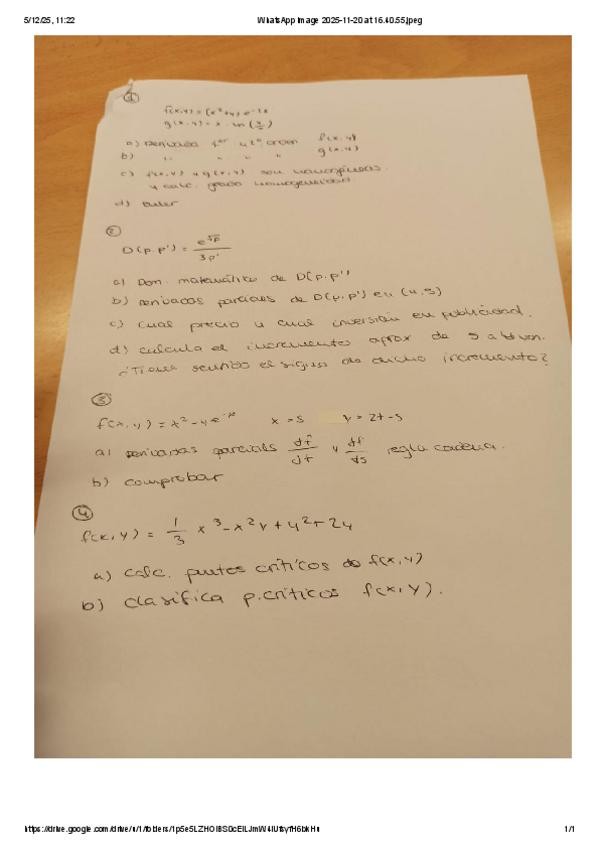 5/12/25, 11:22
WhatsApp Image 2025-11-20 at 16.40.55.jpeg
①
f(x,y) = (x²+y) e
g(x,y) = x
a) Derivada 1er y 2º orden f(x,y)
b) " " " " g(x,y)
c) f(x,y) y g(x,y) son homogéneas.
y calc. grado homogeneidad
d) Euler
②
D(p.p') = e^√p / 3p'
a) Dom. matemático de D(p.p')
b) Derivadas parciales de D(p.p') en (4,5)
c) Cual precio y cual inversión en publicidad.
d) calcula el incremento aprox de
¿Tiene sentido el signo de dicho incremento?
③
f(x,y) = x² - y e x = s y = 2t - s
a) Derivadas parciales df/dt y df/ds regla cadena.
b) comprobar
④
f(x,y) = 1/3 x³ - x²y + y² + 24
a) calc. puntos críticos de f(x,y)
b) clasifica p.críticos f(x,y).
1/1